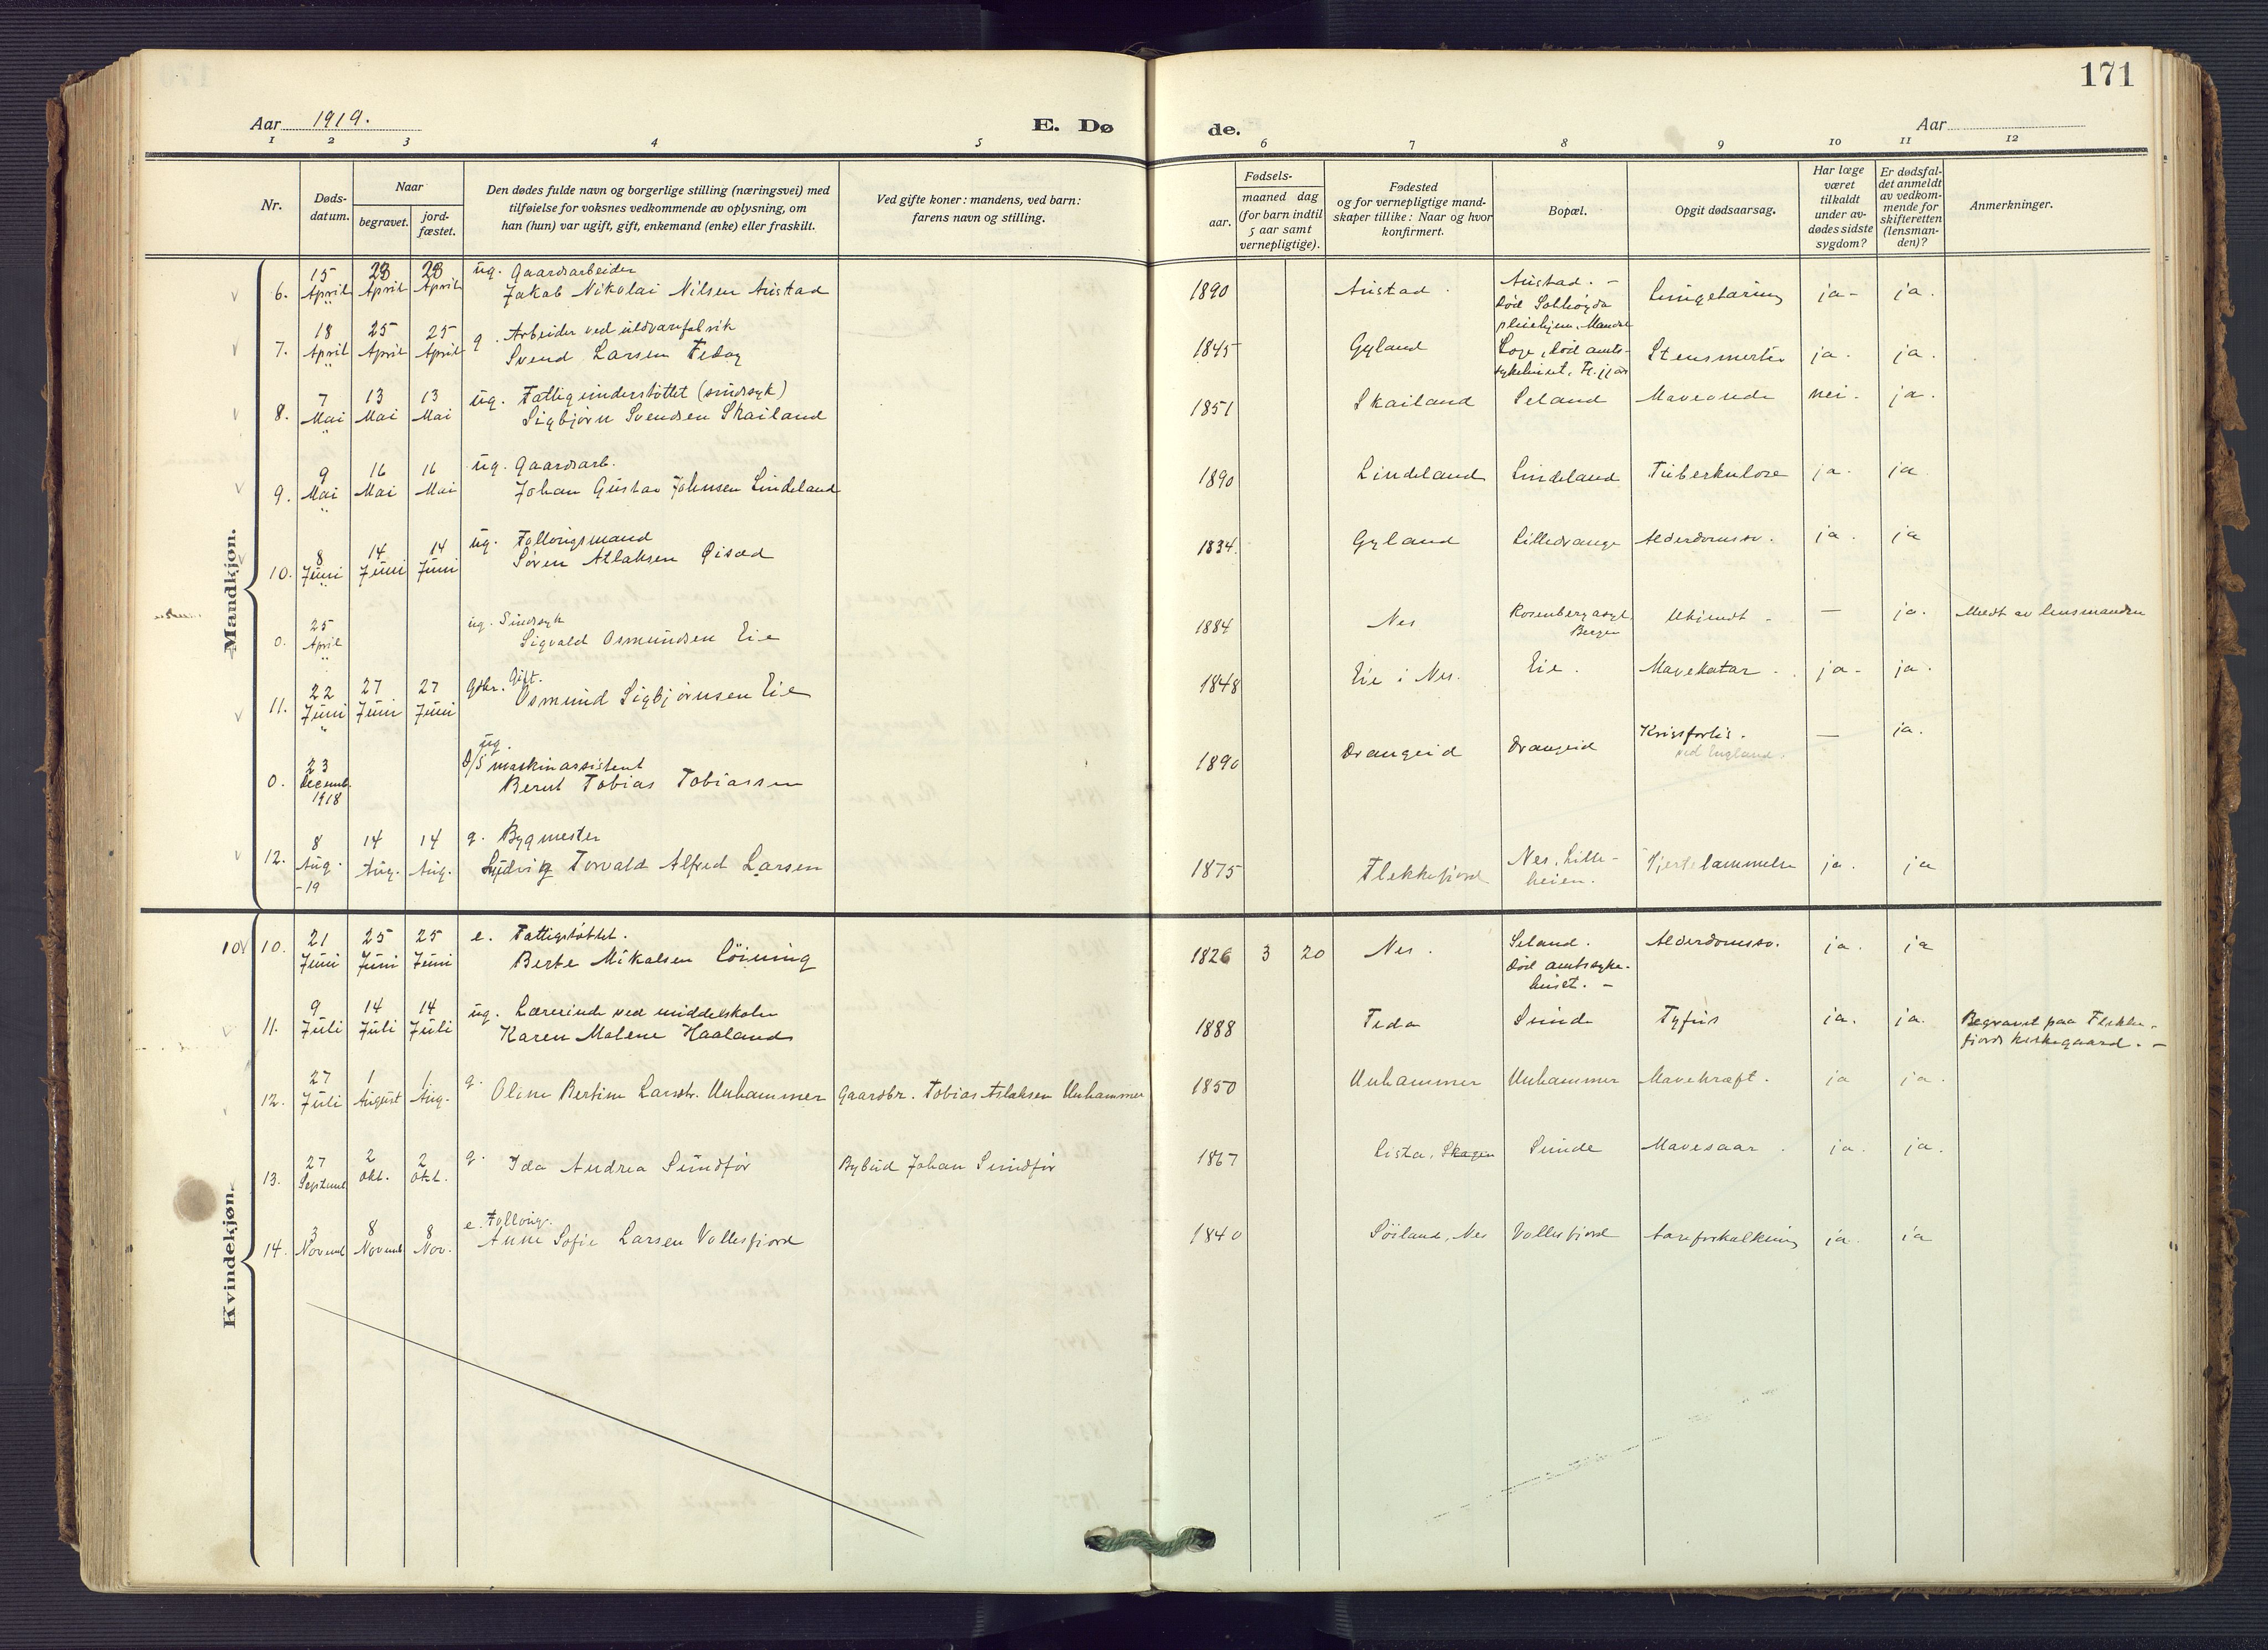 171
Aar 1919.
E. Dø
de.
Aar
1 2 3 4 5 6 7 8 9 10 11 12
Nr.
Døds-
datum.
Naar
begravet.
jord-
fæstet.
Den dødes fulde navn og borgerlige stilling (næringsvei) med
tilføielse for voksnes vedkommende av oplysning, om
han (hun) var ugift, gift, enkemand (enke) eller fraskilt.
Ved gifte koner: mandens, ved barn:
farens navn og stilling.
Fødsels-
aar.
maaned dag
(for barn indtil
5 aar samt
vernepligtige).
Fødested
og for vernepligtige mand-
skaper tillike: Naar og hvor
konfirmert.
Bopæl.
Opgit dødsaarsag.
Har læge
været
tilkaldt
under av-
dødes sidste
sygdom?
Er dødsfal-
det anmeldt
av vedkom-
mende for
skifteretten
(lensman-
den)?
Anmerkninger.
Mandkjøn.
6. 15 April 23 April 23 April ug. Gaardsarbeider
Jakob Nikolai Nilsen Austad 1890 Austad. Austad. -
død Solhøgda
pleiehjem, Mandal
ja- ja.
7. 18 April 25 April 25 April g. Arbeider ved uldvarefabrik
Svend Larsen Fedog 1845 Gyland Loge, død amts-
sykehuset, Fl.fjord
Stensmerter ja. ja.
8. 7 Mai 13 Mai 13 Mai ug. Fattigunderstöttet (sindssyk)
Sigbjörn Svendsen Skailand 1851 Skailand Seland Maveonde nei. ja.
9. 9 Mai 16 Mai 16 Mai ug. Gaardsarb.
Johan Gustav Johnsen Lindeland 1890 Lindeland Lindeland Tuberkulose ja. ja
10. 8 Juni 14 Juni 14 Juni ug. Følloугsmand
Sören Atlaksen Öisæd 1834. Gyland Lilledrange Alderdomssv. ja. ja
0. 25 April ug. Sindssyk
Sigvald Osmundsen Eie 1884 Nes Rosenberg asyl,
Bergen
Ukjendt - — ja. Meldt av lensmanden
11. 22 Juni 27 Juni 27 Juni Gbr. Gift.
Osmund Sigbjörnsen Eie 1848 Eie i Nes. Eie. Mavekatar. ja- ja.
0. 23 Decemb. 1918 ug.
D/S maskinassistent
Bernt Tobias Tobiassen 1890 Drangeid Drangeid Krigsforlis.
ved England.
— ja.
12. 8 Aug. -19 14 Aug. 14 Aug. g. Bygmester
Ludvig Torvald Alfred Larsen 1875 Flekkefjord Nes, Lille-
heien.
Hjertelammelse ja. ja
Kvindekjøn.
10 10. 21 Juni 25 Juni 25 Juni e. Fattigstöttet.
Berte Mikalsen Löining 1826 3 20 Nes. Seland.
död amtssyke-
huset. -
Alderdomssv. ja. ja
11. 9 Juli 14 Juli 14 Juli ug. Lærerinde ved middelskolen
Karen Malene Haaland 1888 Feda Sunde Tyfus ja. ja. Begravet paa Flekke-
fjords kirkegaard. -
12. 27 Juli 1 August 1 Aug. g. Oline Bertine Larsdtr. Unhammer Gaardbr. Tobias Aslaksen Unhammer 1850 Unhammer Unhammer Mavekræft. ja ja.
13. 27 Septemb 2 Okt. 2 Okt. g. Ida Andrea Sundför Bybud Johan Sundför 1867 Lista, Skagen Sunde Mavesaar. ja. ja.
14. 3 Novemb 8 Novemb 8 Nov. e. Fölloug.
Anne Sofie Larsen Vollesfjord 1840 Söiland, Nes Vollesfjord Aareforkalkning ja. ja